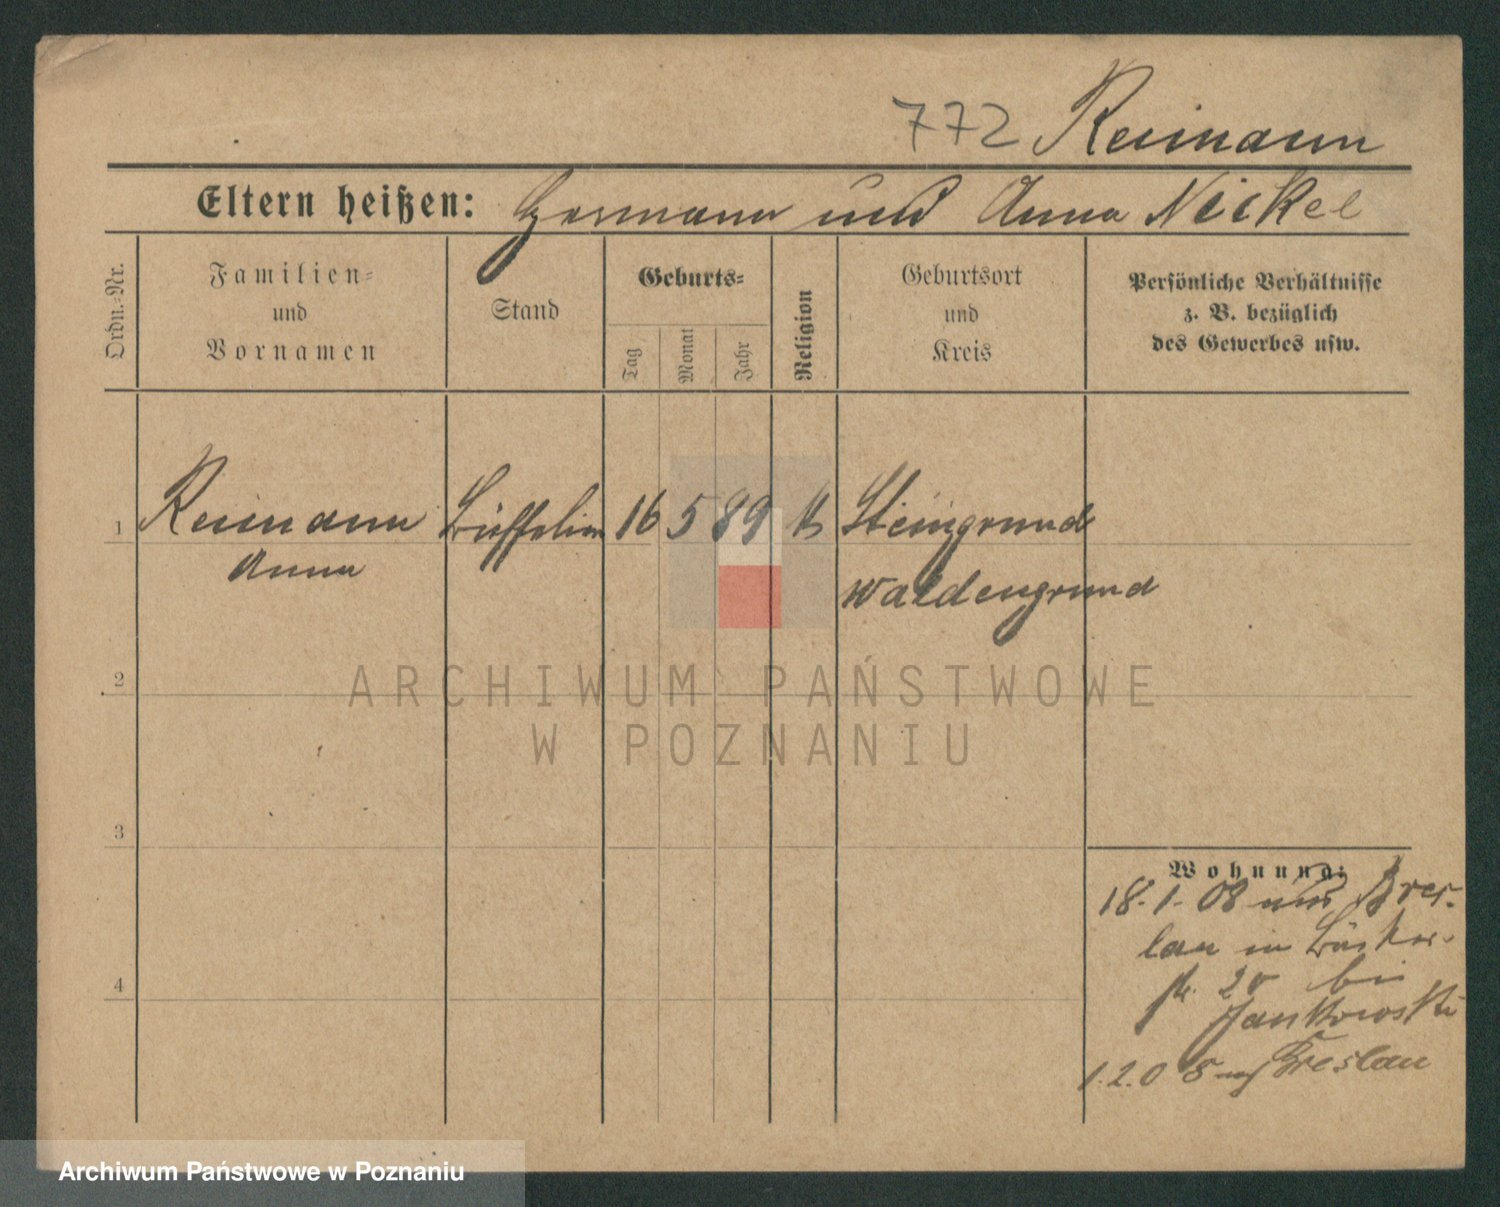 772 Reimann
Eltern heißen: Hermann und Anna Nickel
Ordn.-Nr.
Familien-
und
Vornamen
Stand
Geburts-
Tag
Monat
Jahr
Religion
Geburtsort
und
Kreis
Persönliche Verhältnisse
z. B. bezüglich
des Gewerbes usw.
1 Reimann Büffetier 16 5 89 k Steingrund
Anna Waldengrund
2
ARCHIWUM PAŃSTWOWE
W POZNANIU
3
4
Wohnung:
18.1.08 aus Bres-
lau in Bäcker-
str. 20 bei
Jankowski
1.2.08 n. Breslau
Archiwum Państwowe w Poznaniu